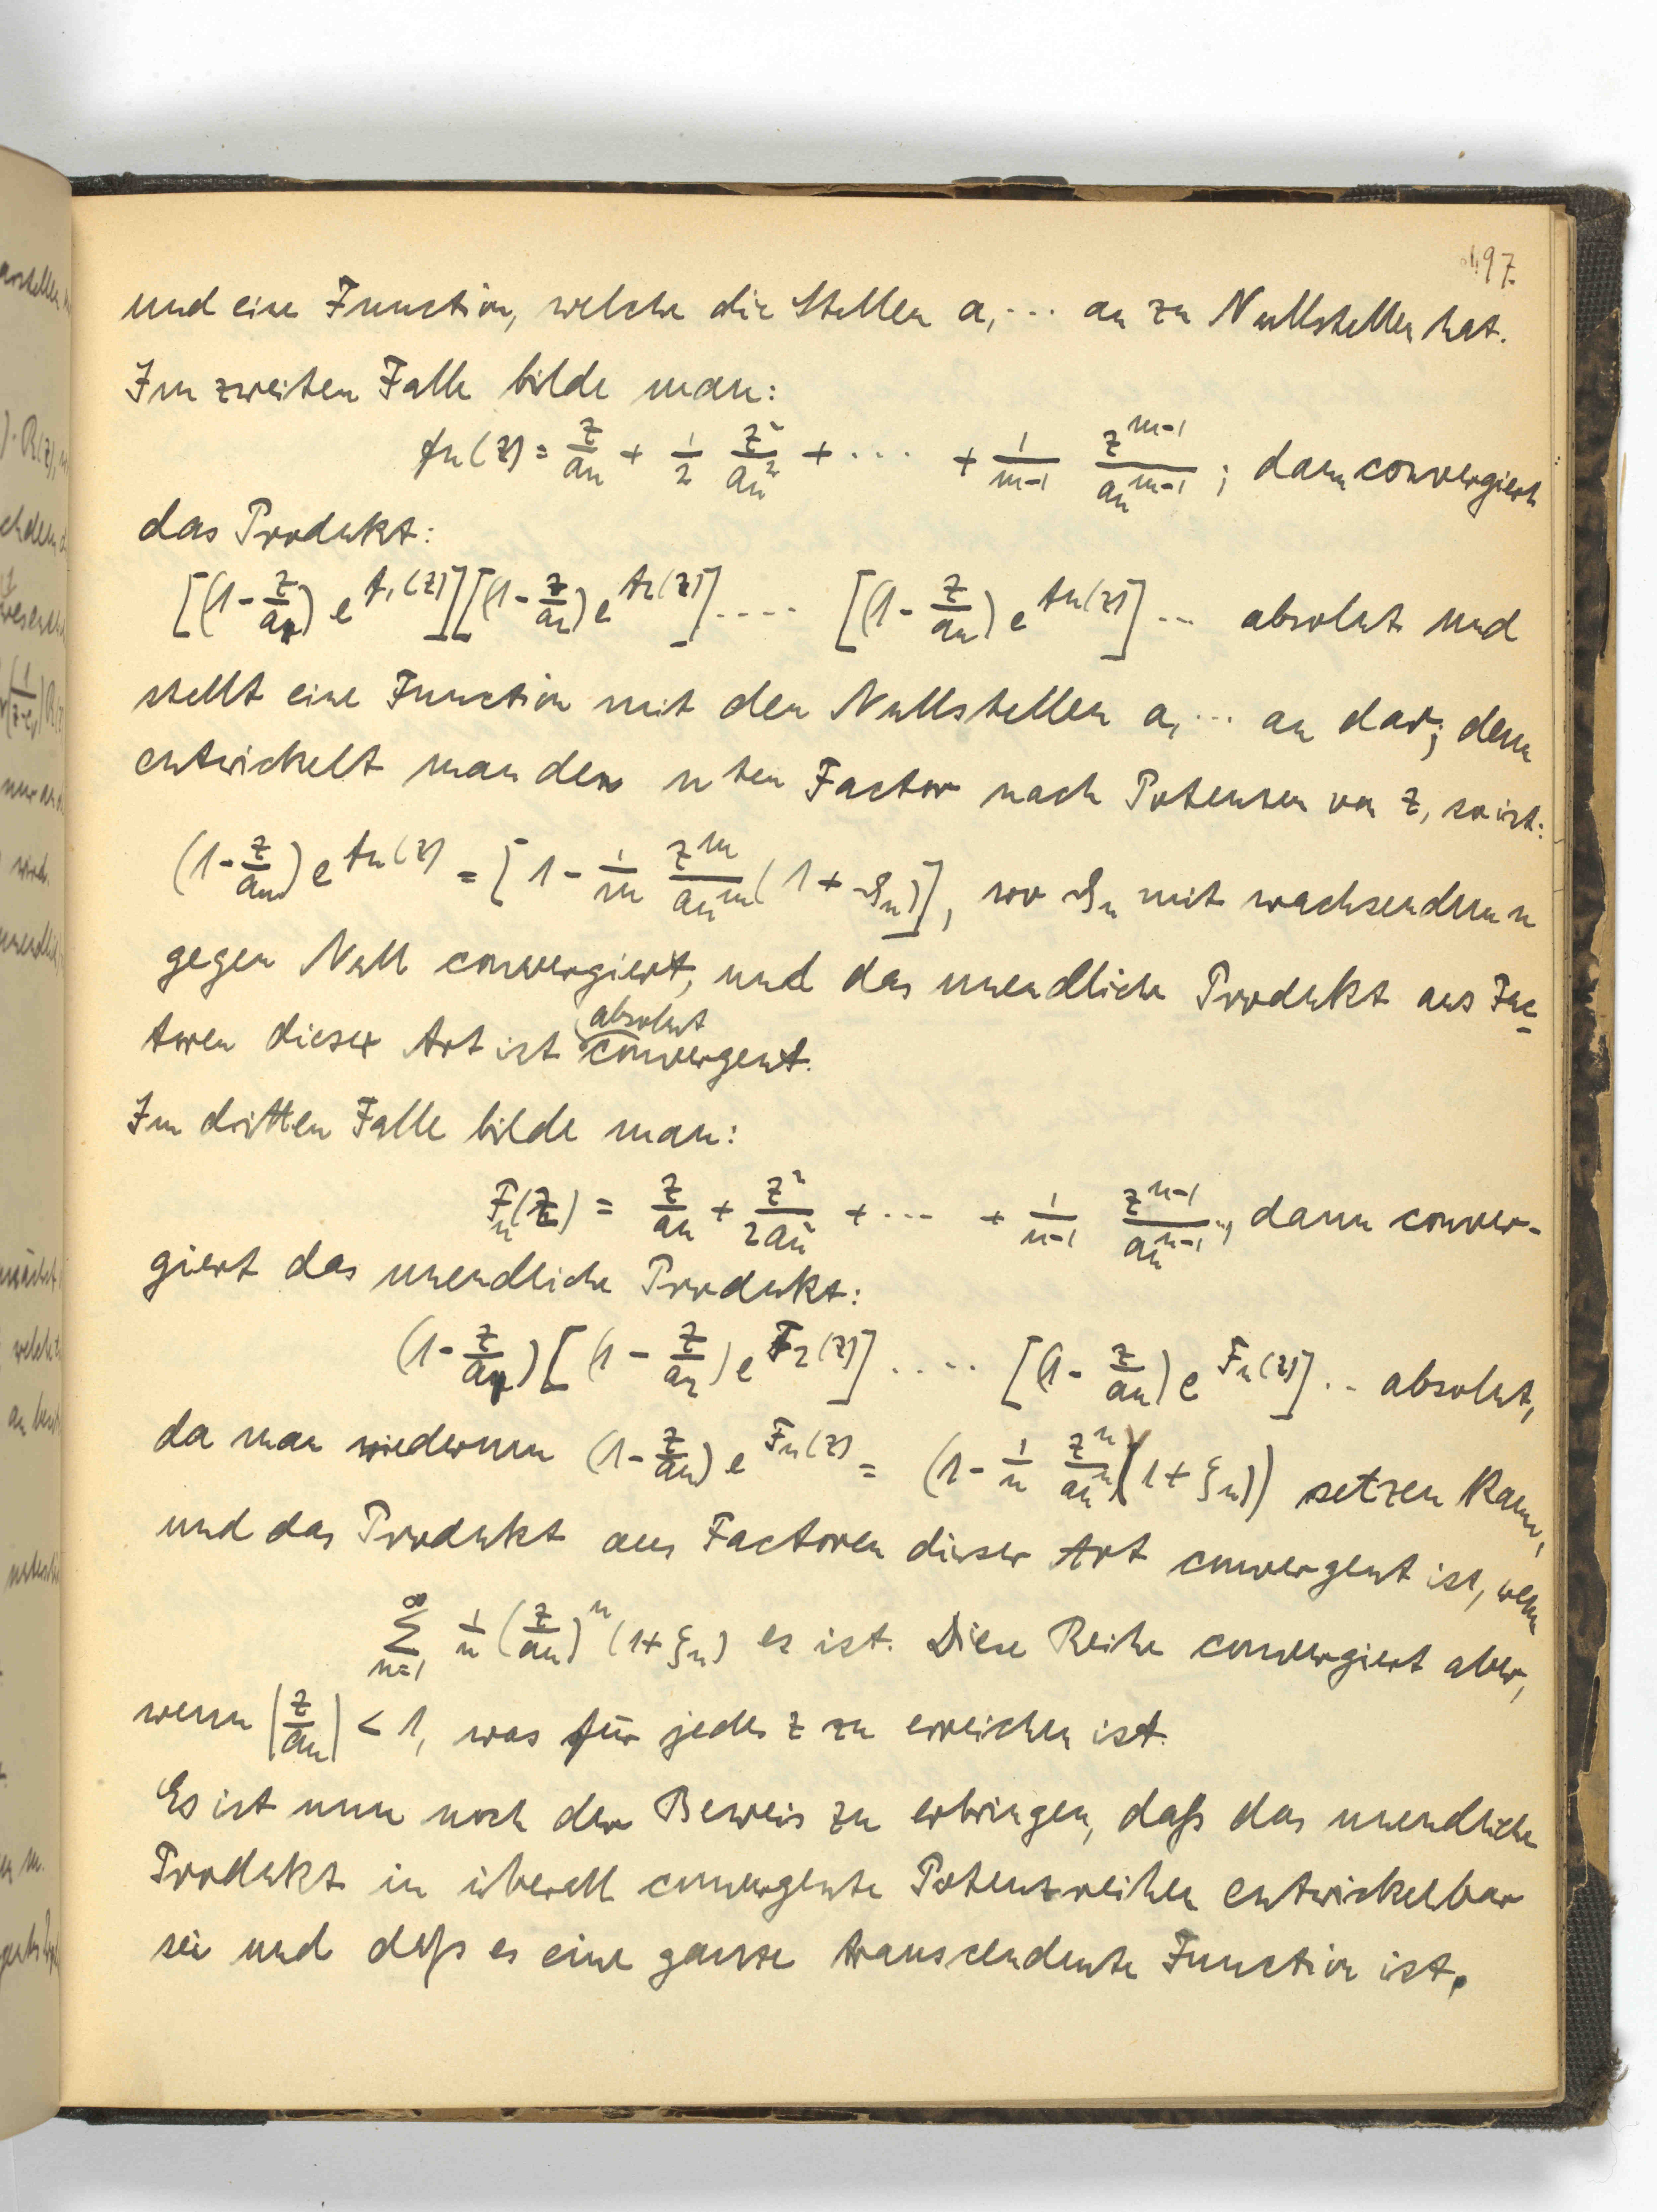 197.
und eine Function, welche die Stellen a₁ ... aₙ zu Nullstellen hat.
Im zweiten Falle bilde man:
fₙ(z) = z/aₙ + 1/2 z²/aₙ² + ... + 1/(m-1) z^(m-1)/aₙ^(m-1); dann convergiert
das Produkt:
[(1-z/a₁) e^(f₁(z))][(1-z/a₂) e^(f₂(z))].... [(1-z/aₙ) e^(fₙ(z))]... absolut und
stellt eine Function mit den Nullstellen a₁ ... aₙ dar; denn
entwickelt man den nten Factor nach Potenzen von z, so ist:
(1-z/aₙ) e^(fₙ(z)) = [1 - 1/m z^m/aₙ^m (1+ϑₙ)], wo ϑₙ mit wachsendem n
gegen Null convergiert, und das unendliche Produkt aus Fac-
toren dieser Art ist absolut convergent.
Im dritten Falle bilde man:
Fₙ(z) = z/aₙ + z²/2aₙ² + ... + 1/(n-1) z^(n-1)/aₙ^(n-1), dann conver-
giert das unendliche Produkt:
(1-z/a₁)[(1-z/a₂) e^(F₂(z))]..... [(1-z/aₙ) e^(Fₙ(z))]... absolut,
da man wiederum (1-z/aₙ) e^(Fₙ(z)) = (1 - 1/n z^n/aₙ^n (1+ξₙ)) setzen kann,
und das Produkt aus Factoren dieser Art convergent ist, wenn
∑_(n=1)^∞ 1/n (z/aₙ)^n (1+ξₙ) es ist. Diese Reihe convergiert aber,
wenn |z/aₙ| < 1, was für jedes z zu erreichen ist.
Es ist nun noch der Beweis zu erbringen, daß das unendliche
Produkt in überall convergente Potenzreihen entwickelbar
sei und daß es eine ganze transcendente Function ist.